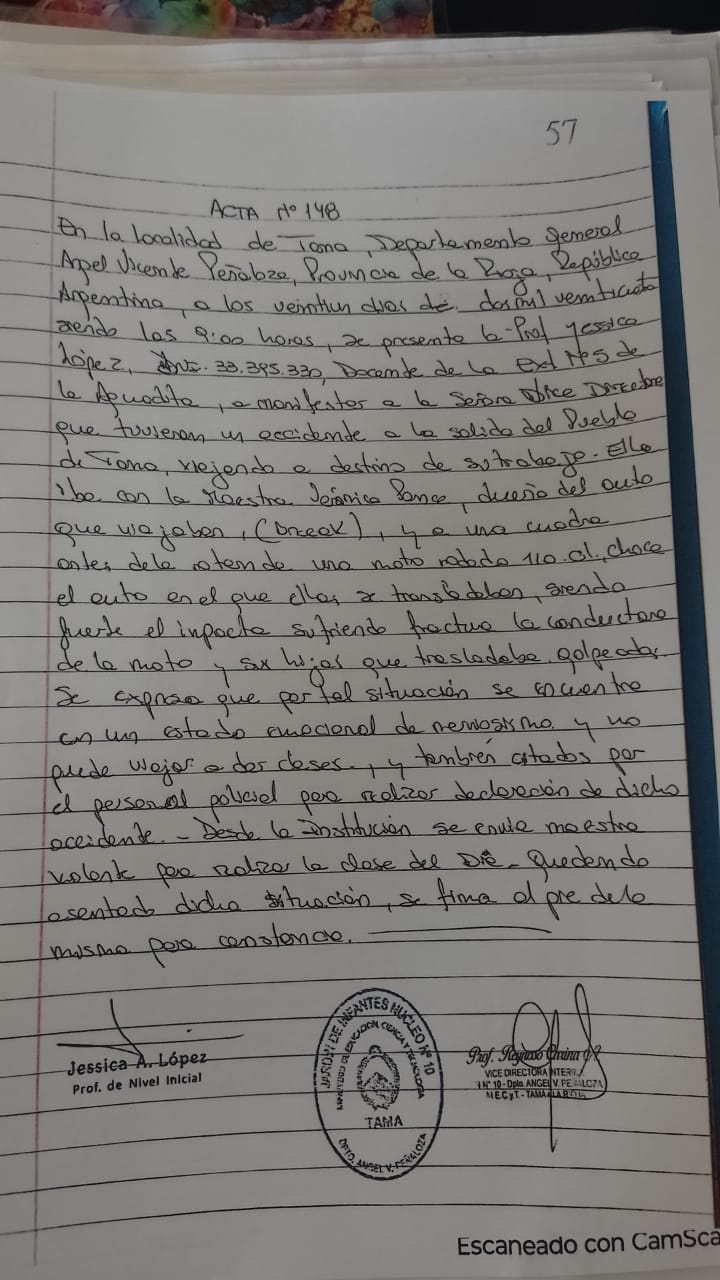 57
ACTA Nº 148
En la localidad de Tama, Departamento General
Angel Vicente Peñaloza, Provincia de la Rioja, República
Argentina, a los veintiun dias de dosmil veinticuatro
siendo las 9:00 horas, se presenta la Prof Yessica
López, DNI. 33.395.330, Docente de la ext Nº5 de
la Aguadita, a manifestar a la Señora Vice Directora
que tuvieron un accidente a la salida del Pueblo
de Tama, viajando a destino de su trabajo. Ella
iba con la Maestra Verónica Ponce, dueña del auto
que viajaban, (break), y a una cuadra
antes de la rotonda una moto rodado 110 cl, choca
el auto en el que ellas se trasladaban, siendo
fuerte el inpacto sufriendo fractura la conductora
de la moto y sus hijas que trasladaba golpeadas.
Se expresa que por tal situación se encuentra
en un estado emocional de nerviosismo y no
puede viajar a dar clases, y tambien citados por
el personal policial para realizar declaración de dicho
accidente. - Desde la Institución se envia maestra
volante para realizar la clase del Dia - Quedando
asentado dicha situación, se firma al pie de la
misma para constancia.
Jessica A. López
Prof. de Nivel Inicial
JARDIN DE INFANTES NUCLEO Nº 10
MINISTERIO DE EDUCACION CIENCIA Y TECNOLOGIA
TAMA
DPTO. ANGEL V. PEÑALOZA
Prof. Reynoso
VICE DIRECTORA INTERINA
Nº 10 - Dpto. ANGEL V. PEÑALOZA
M.E.C.y T. - TAMA - LA RIOJA
Escaneado con CamSca